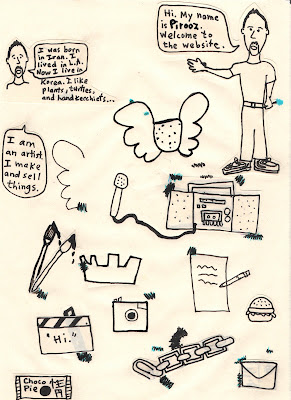 Hi. My name
is Pirooz.
Welcome to
the website.
I was born
in Iran. I
lived in L.A.
Now I live in
Korea. I like
plants, turtles,
and handkerchiefs...
I am
an artist
I make
and sell
things.
"Hi."
Choco
Pie